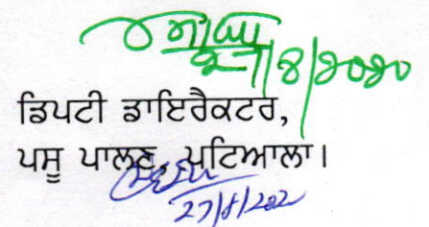 27/8/2020
ਡਿਪਟੀ ਡਾਇਰੈਕਟਰ,
ਪਸੂ ਪਾਲਣ, ਪਟਿਆਲਾ।
27/8/202